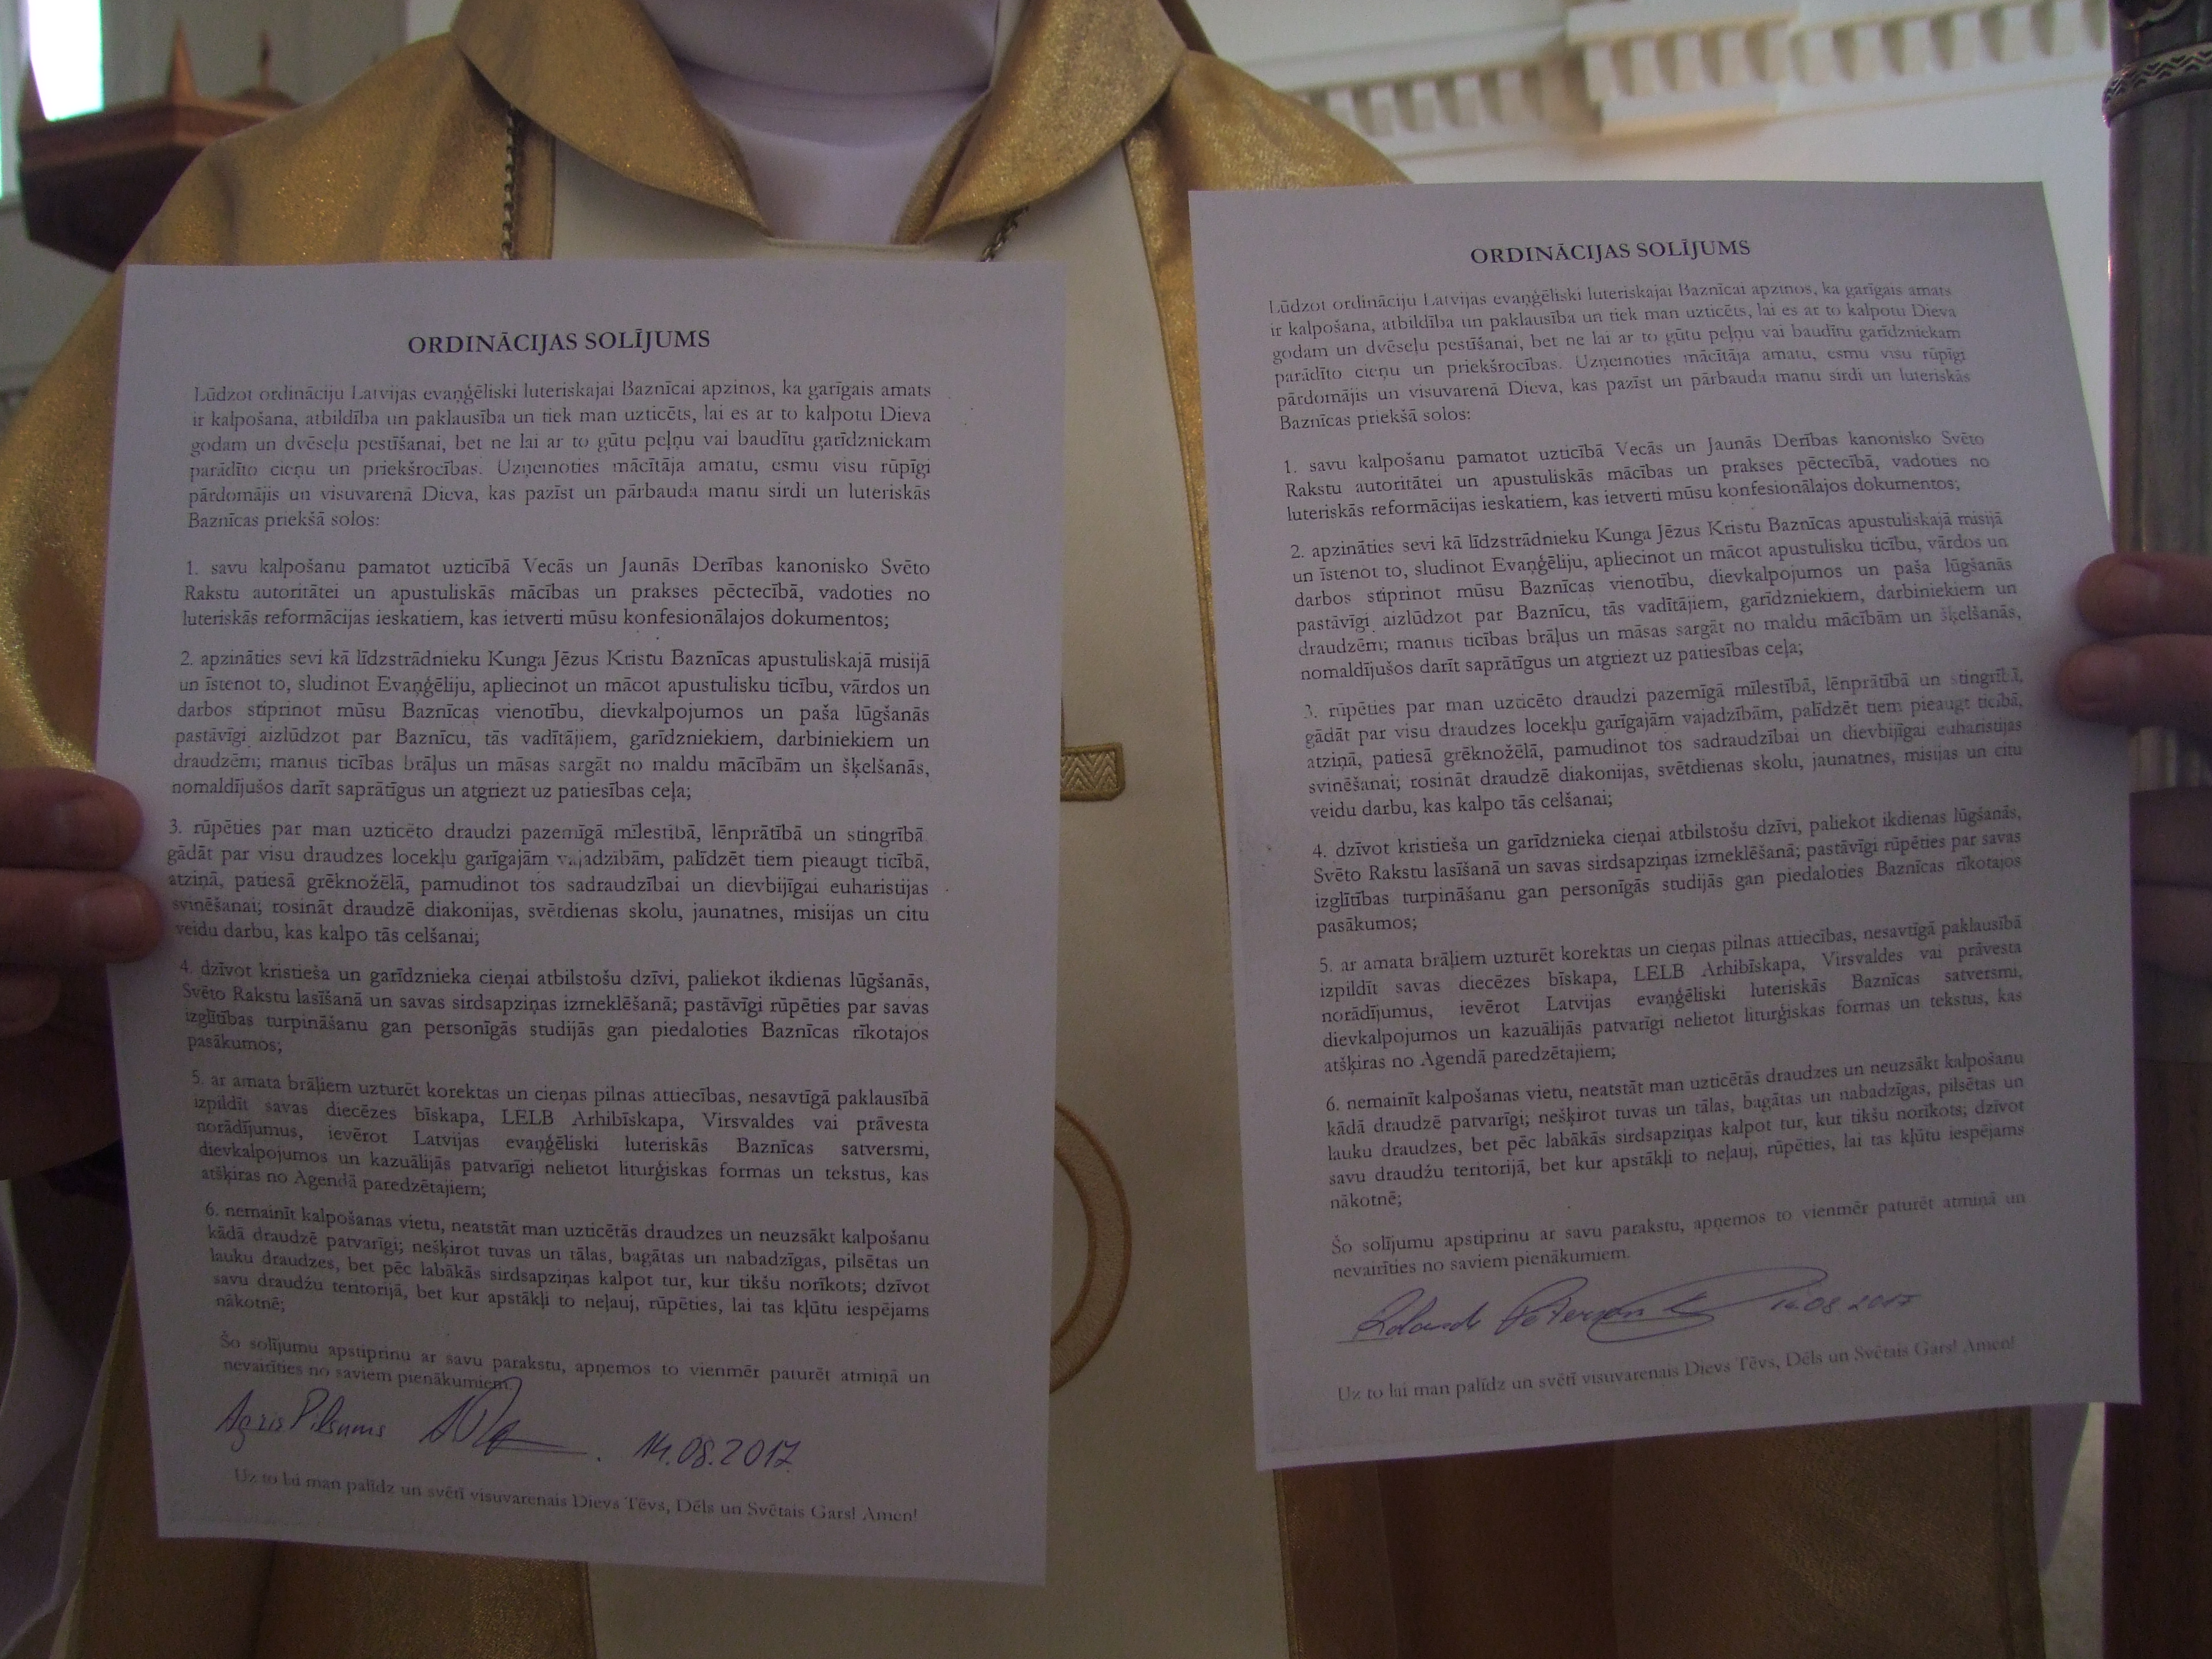 ORDINĀCIJAS SOLĪJUMS
Lūdzot ordināciju Latvijas evaņģēliski luteriskajai Baznīcai apzinos, ka garīgais amats
ir kalpošana, atbildība un paklausība un tiek man uzticēts, lai es ar to kalpotu Dieva
godam un dvēseļu pestīšanai, bet ne lai ar to gūtu peļņu vai baudītu garīdzniekam
parādīto cieņu un priekšrocības. Uzņemoties mācītāja amatu, esmu visu rūpīgi
pārdomājis un visuvarenā Dieva, kas pazīst un pārbauda manu sirdi un luteriskās
Baznīcas priekšā solos:
1. savu kalpošanu pamatot uzticībā Vecās un Jaunās Derības kanonisko Svēto
Rakstu autoritātei un apustuliskās mācības un prakses pēctecībā, vadoties no
luteriskās reformācijas ieskatiem, kas ietverti mūsu konfesionālajos dokumentos;
2. apzināties sevi kā līdzstrādnieku Kunga Jēzus Kristu Baznīcas apustuliskajā misijā
un īstenot to, sludinot Evaņģēliju, apliecinot un mācot apustulisku ticību, vārdos un
darbos stiprinot mūsu Baznīcas vienotību, dievkalpojumos un paša lūgšanās
pastāvīgi aizlūdzot par Baznīcu, tās vadītājiem, garīdzniekiem, darbiniekiem un
draudzēm; manus ticības brāļus un māsas sargāt no maldu mācībām un šķelšanās,
nomaldījušos darīt saprātīgus un atgriezt uz patiesības ceļa;
3. rūpēties par man uzticēto draudzi pazemīgā mīlestībā, lēnprātībā un stingrībā
gādāt par visu draudzes locekļu garīgajām vajadzībām, palīdzēt tiem pieaugt ticībā,
atziņā, patiesā grēknožēlā, pamudinot tos sadraudzībai un dievbijīgai euharistijas
svinēšanai; rosināt draudzē diakonijas, svētdienas skolu, jaunatnes, misijas un citu
veidu darbu, kas kalpo tās celšanai;
4. dzīvot kristieša un garīdznieka cieņai atbilstošu dzīvi, paliekot ikdienas lūgšanās,
Svēto Rakstu lasīšanā un savas sirdsapziņas izmeklēšanā; pastāvīgi rūpēties par savas
izglītības turpināšanu gan personīgās studijās gan piedaloties Baznīcas rīkotajos
pasākumos;
5. ar amata brāļiem uzturēt korektas un cieņas pilnas attiecības, nesavtīgā paklausībā
izpildīt savas diecēzes bīskapa, LELB Arhibīskapa, Virsvaldes vai prāvesta
norādījumus, ievērot Latvijas evaņģēliski luteriskās Baznīcas satversmi,
dievkalpojumos un kazuālijās patvarīgi nelietot liturģiskas formas un tekstus, kas
atšķiras no Agendā paredzētajiem;
6. nemainīt kalpošanas vietu, neatstāt man uzticētās draudzes un neuzsākt kalpošanu
kādā draudzē patvarīgi; nešķirot tuvas un tālas, bagātas un nabadzīgas, pilsētas un
lauku draudzes, bet pēc labākās sirdsapziņas kalpot tur, kur tikšu norīkots; dzīvot
savu draudžu teritorijā, bet kur apstākļi to neļauj, rūpēties, lai tas kļūtu iespējams
nākotnē;
Šo solījumu apstiprinu ar savu parakstu, apņemos to vienmēr paturēt atmiņā un
nevairīties no saviem pienākumiem.
Agris Pilsums 14.08.2017
Uz to lai man palīdz un svētī visuvarenais Dievs Tēvs, Dēls un Svētais Gars! Amen!
ORDINĀCIJAS SOLĪJUMS
Lūdzot ordināciju Latvijas evaņģēliski luteriskajai Baznīcai apzinos, ka garīgais amats
ir kalpošana, atbildība un paklausība un tiek man uzticēts, lai es ar to kalpotu Dieva
godam un dvēseļu pestīšanai, bet ne lai ar to gūtu peļņu vai baudītu garīdzniekam
parādīto cieņu un priekšrocības. Uzņemoties mācītāja amatu, esmu visu rūpīgi
pārdomājis un visuvarenā Dieva, kas pazīst un pārbauda manu sirdi un luteriskās
Baznīcas priekšā solos:
1. savu kalpošanu pamatot uzticībā Vecās un Jaunās Derības kanonisko Svēto
Rakstu autoritātei un apustuliskās mācības un prakses pēctecībā, vadoties no
luteriskās reformācijas ieskatiem, kas ietverti mūsu konfesionālajos dokumentos;
2. apzināties sevi kā līdzstrādnieku Kunga Jēzus Kristu Baznīcas apustuliskajā misijā
un īstenot to, sludinot Evaņģēliju, apliecinot un mācot apustulisku ticību, vārdos un
darbos stiprinot mūsu Baznīcas vienotību, dievkalpojumos un paša lūgšanās
pastāvīgi aizlūdzot par Baznīcu, tās vadītājiem, garīdzniekiem, darbiniekiem un
draudzēm; manus ticības brāļus un māsas sargāt no maldu mācībām un šķelšanās,
nomaldījušos darīt saprātīgus un atgriezt uz patiesības ceļa;
3. rūpēties par man uzticēto draudzi pazemīgā mīlestībā, lēnprātībā un stingrībā,
gādāt par visu draudzes locekļu garīgajām vajadzībām, palīdzēt tiem pieaugt ticībā,
atziņā, patiesā grēknožēlā, pamudinot tos sadraudzībai un dievbijīgai euharistijas
svinēšanai; rosināt draudzē diakonijas, svētdienas skolu, jaunatnes, misijas un citu
veidu darbu, kas kalpo tās celšanai;
4. dzīvot kristieša un garīdznieka cieņai atbilstošu dzīvi, paliekot ikdienas lūgšanās,
Svēto Rakstu lasīšanā un savas sirdsapziņas izmeklēšanā; pastāvīgi rūpēties par savas
izglītības turpināšanu gan personīgās studijās gan piedaloties Baznīcas rīkotajos
pasākumos;
5. ar amata brāļiem uzturēt korektas un cieņas pilnas attiecības, nesavtīgā paklausībā
izpildīt savas diecēzes bīskapa, LELB Arhibīskapa, Virsvaldes vai prāvesta
norādījumus, ievērot Latvijas evaņģēliski luteriskās Baznīcas satversmi,
dievkalpojumos un kazuālijās patvarīgi nelietot liturģiskas formas un tekstus, kas
atšķiras no Agendā paredzētajiem;
6. nemainīt kalpošanas vietu, neatstāt man uzticētās draudzes un neuzsākt kalpošanu
kādā draudzē patvarīgi; nešķirot tuvas un tālas, bagātas un nabadzīgas, pilsētas un
lauku draudzes, bet pēc labākās sirdsapziņas kalpot tur, kur tikšu norīkots; dzīvot
savu draudžu teritorijā, bet kur apstākļi to neļauj, rūpēties, lai tas kļūtu iespējams
nākotnē;
Šo solījumu apstiprinu ar savu parakstu, apņemos to vienmēr paturēt atmiņā un
nevairīties no saviem pienākumiem.
14.08.2017
Uz to lai man palīdz un svētī visuvarenais Dievs Tēvs, Dēls un Svētais Gars! Amen!